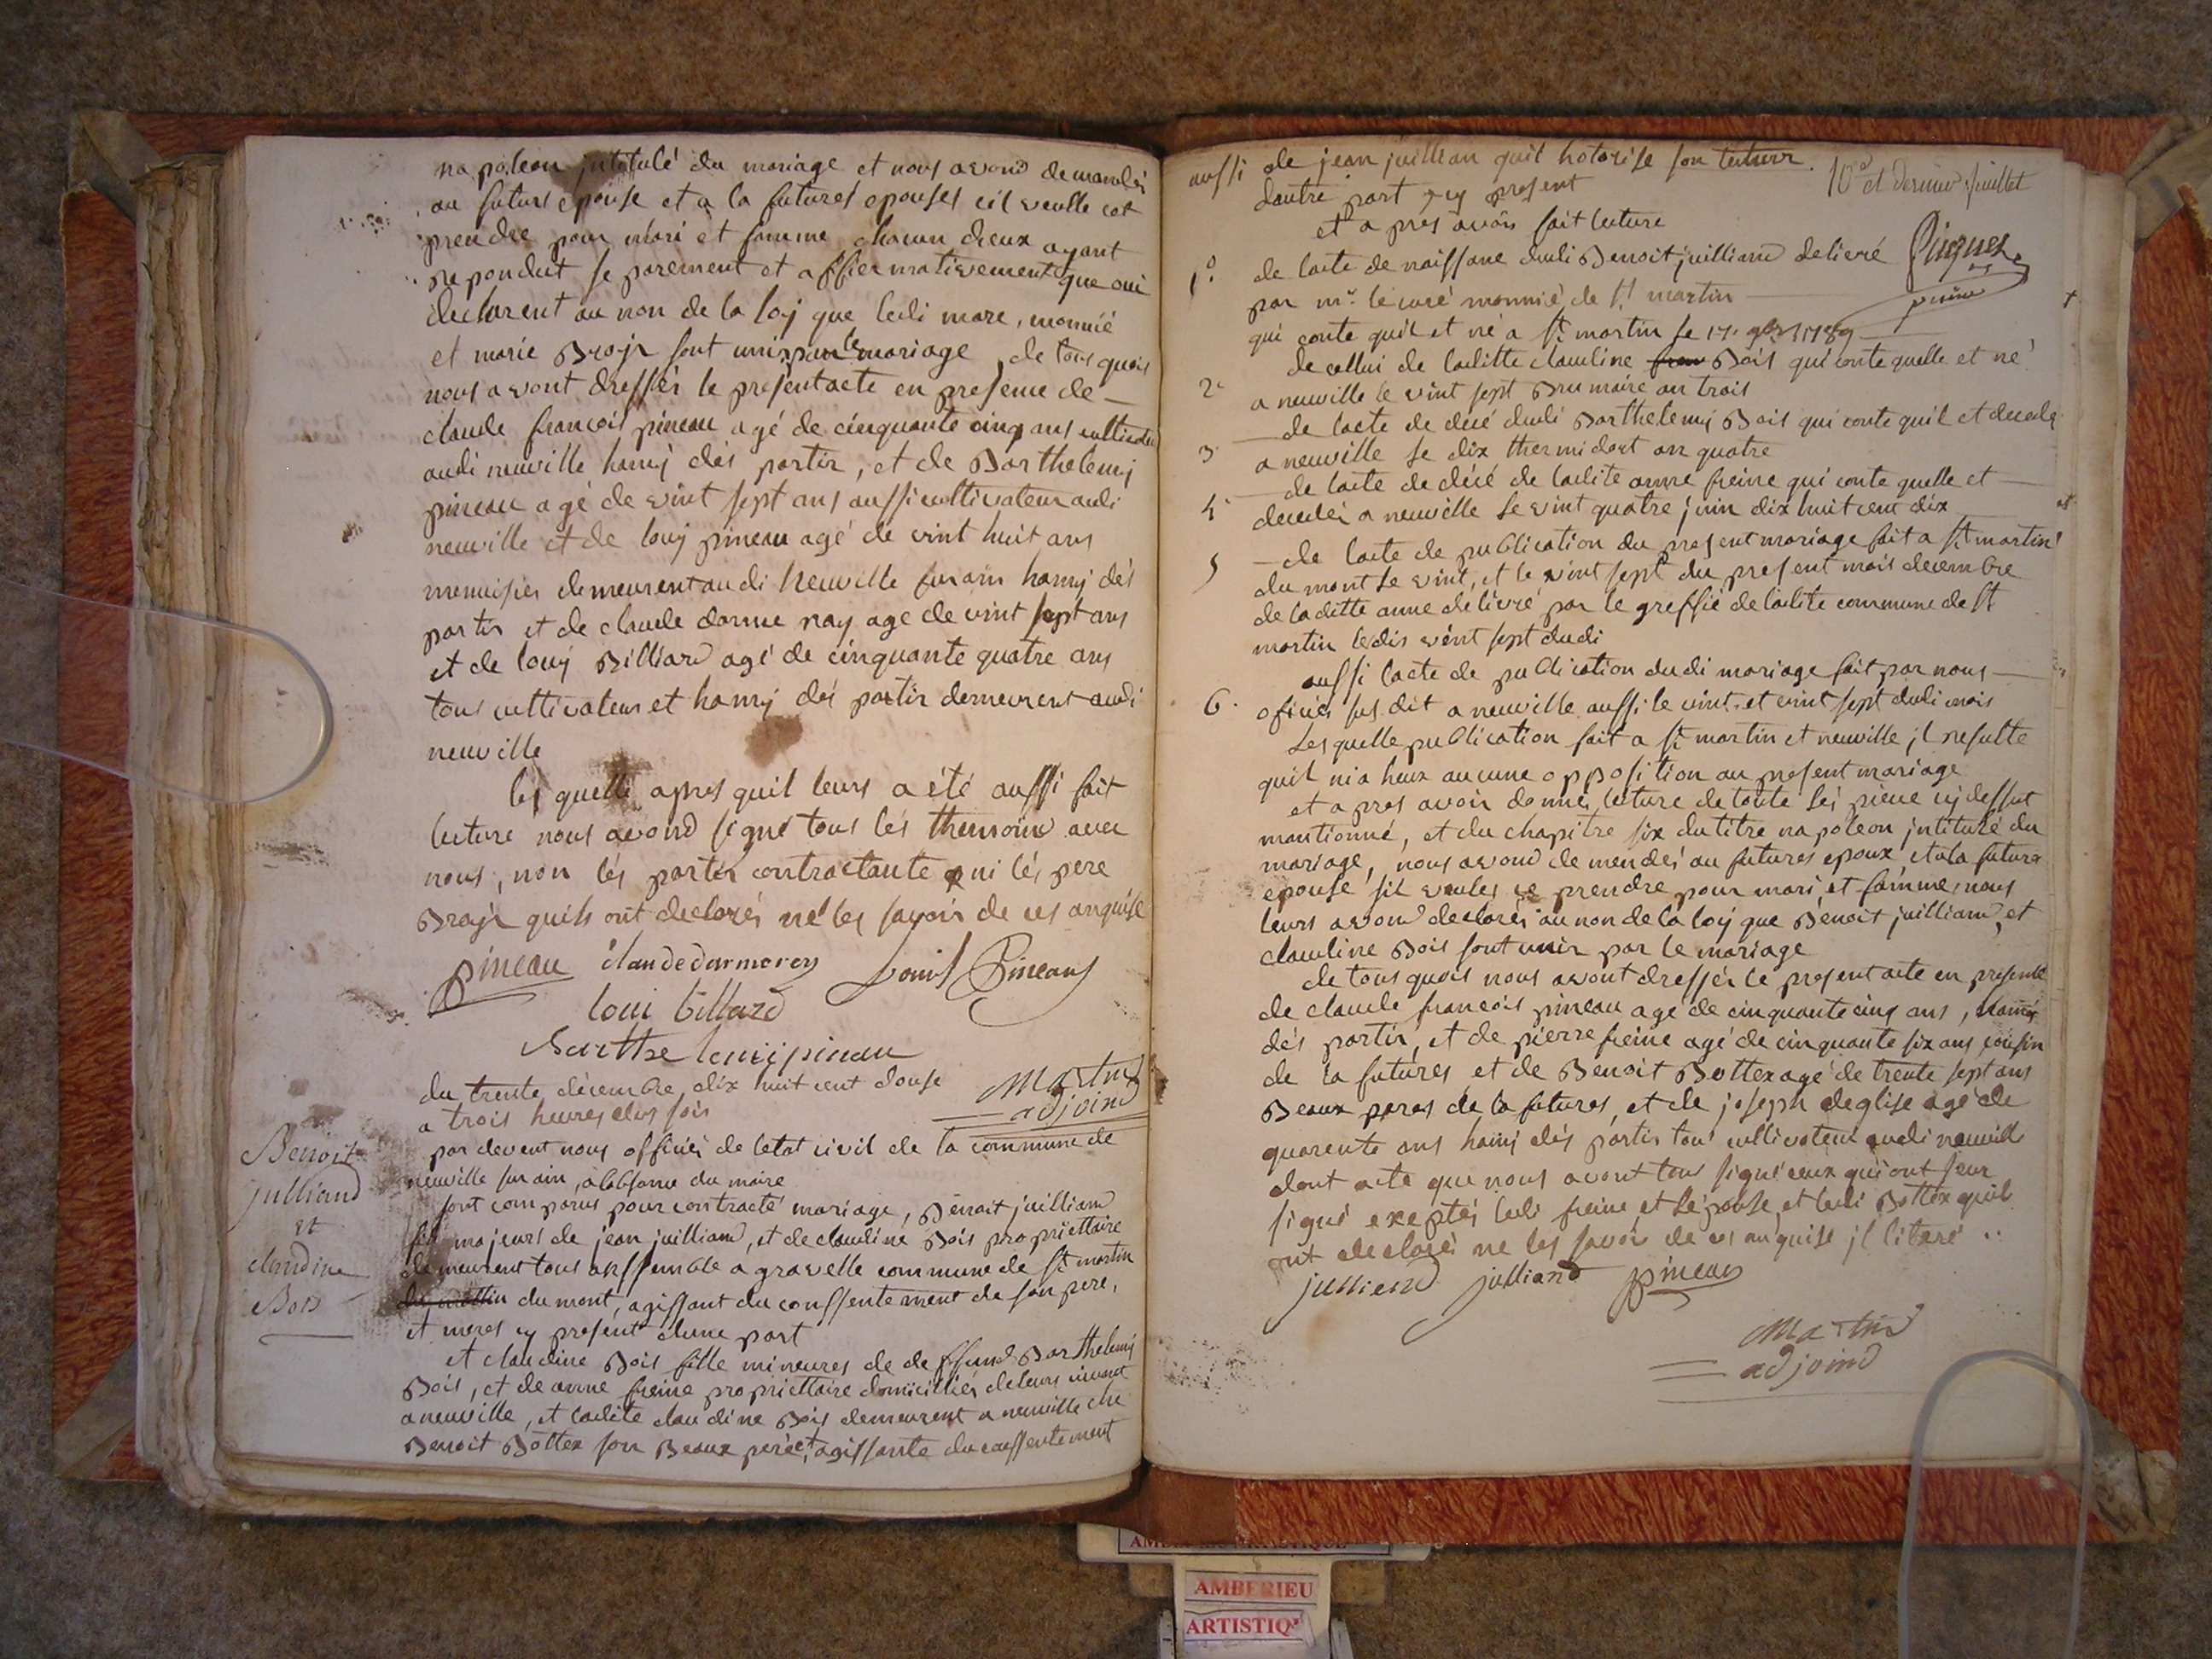 napoleon jntitulé du mariage et nous avond demandés
au futurs epouse et a la futures epouses cil veulle cet
prendre pour mari et famme chacun dieux ayant
repondut se parement et affiermativement que oui
declarent au non de la loj que ledi marc, monnié
et marie Brojr sont unis par le mariage, de tous quois
nous avont dressér le present acte en presence de
claude francois pineau agé de cinquante cinq ans
audi neuville hamj dés partir, et de Barthelemj
pineau agé de vint sept ans aussi cultivateur audi
neuville et de louj pineau agé de vint huit ans
menuisier demeurent audi Neuville sur ain hamj dés
partis et de claude darme ray age de vint sept ans
et de louj Billiard agé de cinquante quatre ans
tous cultivateur et hamj dés partir demeurent audi
neuville
lés quelle apres quil leurs a été aussi fait
lecture nous avond signé tous lés themoins avec
nous, non lés partir contractante ni lés pere
Brajr quils ont declarés ne les savoir de ces anquise
pineau claude darmerey Louis Pineaus
loui billard
Barthelemi pineau
du trente décembre dix huit cent douse
Martin
adjoind
a trois heures dus sois
Benoit
julliand
et
claudine
Bois
par devent nous officiés de letat civil de la commune de
neuville sur ain, a labsance du maire
sont comparus pour contracté mariage, Benoit juilliand
fils majeurs de jean juilliand, et de claudine Bois propriettaire
demeurent tous ansssemble a gravelle commune de St martin
du mont, agissant du conssentement de son pere,
et meres cy present dune part
et claudine Bois fille mineures de deffund Barthelemj
Bois, et de anne freine propriettaire domicilliés de leurs vivant
a neuville, et ladite claudine Bois demeurent a neuville che
Benoit Bottex son Beaux pere, et agissante du conssentement
aussi de jean juillian quil hotorise son tuteur
10e et dernier feuillet
dautre part cy present
et a pres avoir fait lecture
1° de lacte de naissane dudi Benoit juilliand delivré
par mr le curé monnié de St martin
qui conte quil et né a St martin le 17 9bre 1789
de cellui de laditte claudine Bois qui conte quelle et né
2° a neuville le vint sept Brumaire an trois
de lacte de décé dudi Barthelemj Bois qui conte quil et decedé
3 a neuville le dix thermidort an quatre
de lacte de décé de ladite anne freine qui conte quelle et
4 decedés a neuville le vint quatre juin dix huit cent dix
de lacte de publication du present mariage fait a St martin
5 du mont le vint, et le vint sept du present mois decembre
de laditte anne délivré par le greffié de ladite commune de St
martin ledis vint sept dudi
aussi lacte de publication dudi mariage fait par nous
6. oficiés sus dit a neuville aussi le vint et vint sept dudi mois
Les quelle publication fait a St martin et neuville jl resulte
quil nia heux aucune opposition au present mariage
et a pres avoir donnés lecture de toute lés piece cy dessut
mantionné, et du chapitre six du titre napoleon jntitulé du
mariage, nous avond demendés au futures epoux et a la future
epouse sil veules ce prendre pour mari et famme, nous
leurs avond declarés au non de la loj que Benoit juilliand, et
claudine Bois sont unir par le mariage
de tous quois nous avont dressér le present acte en presence
de claude francois pineau agé de cinquante cinq ans, hamj
dés partir, et de pierre freine agé de cinquante six ans cousin
de la futures et de Benoit Bottex agé de trente sept ans
Beaux peres de la futures, et de joseph deglise agé de
quarente ans hamj dés partis tous cultivateur audi neuville
dont acte que nous avont tous signé ceux qui ont seur
signé exceptés ledi freine, et lépouse, et ledi Bottex quil
ont declarés ne les savoir de ce anquise jl literé
julliend julliand pineau
Martin
adjoind
AMBERIEU
ARTISTIQ